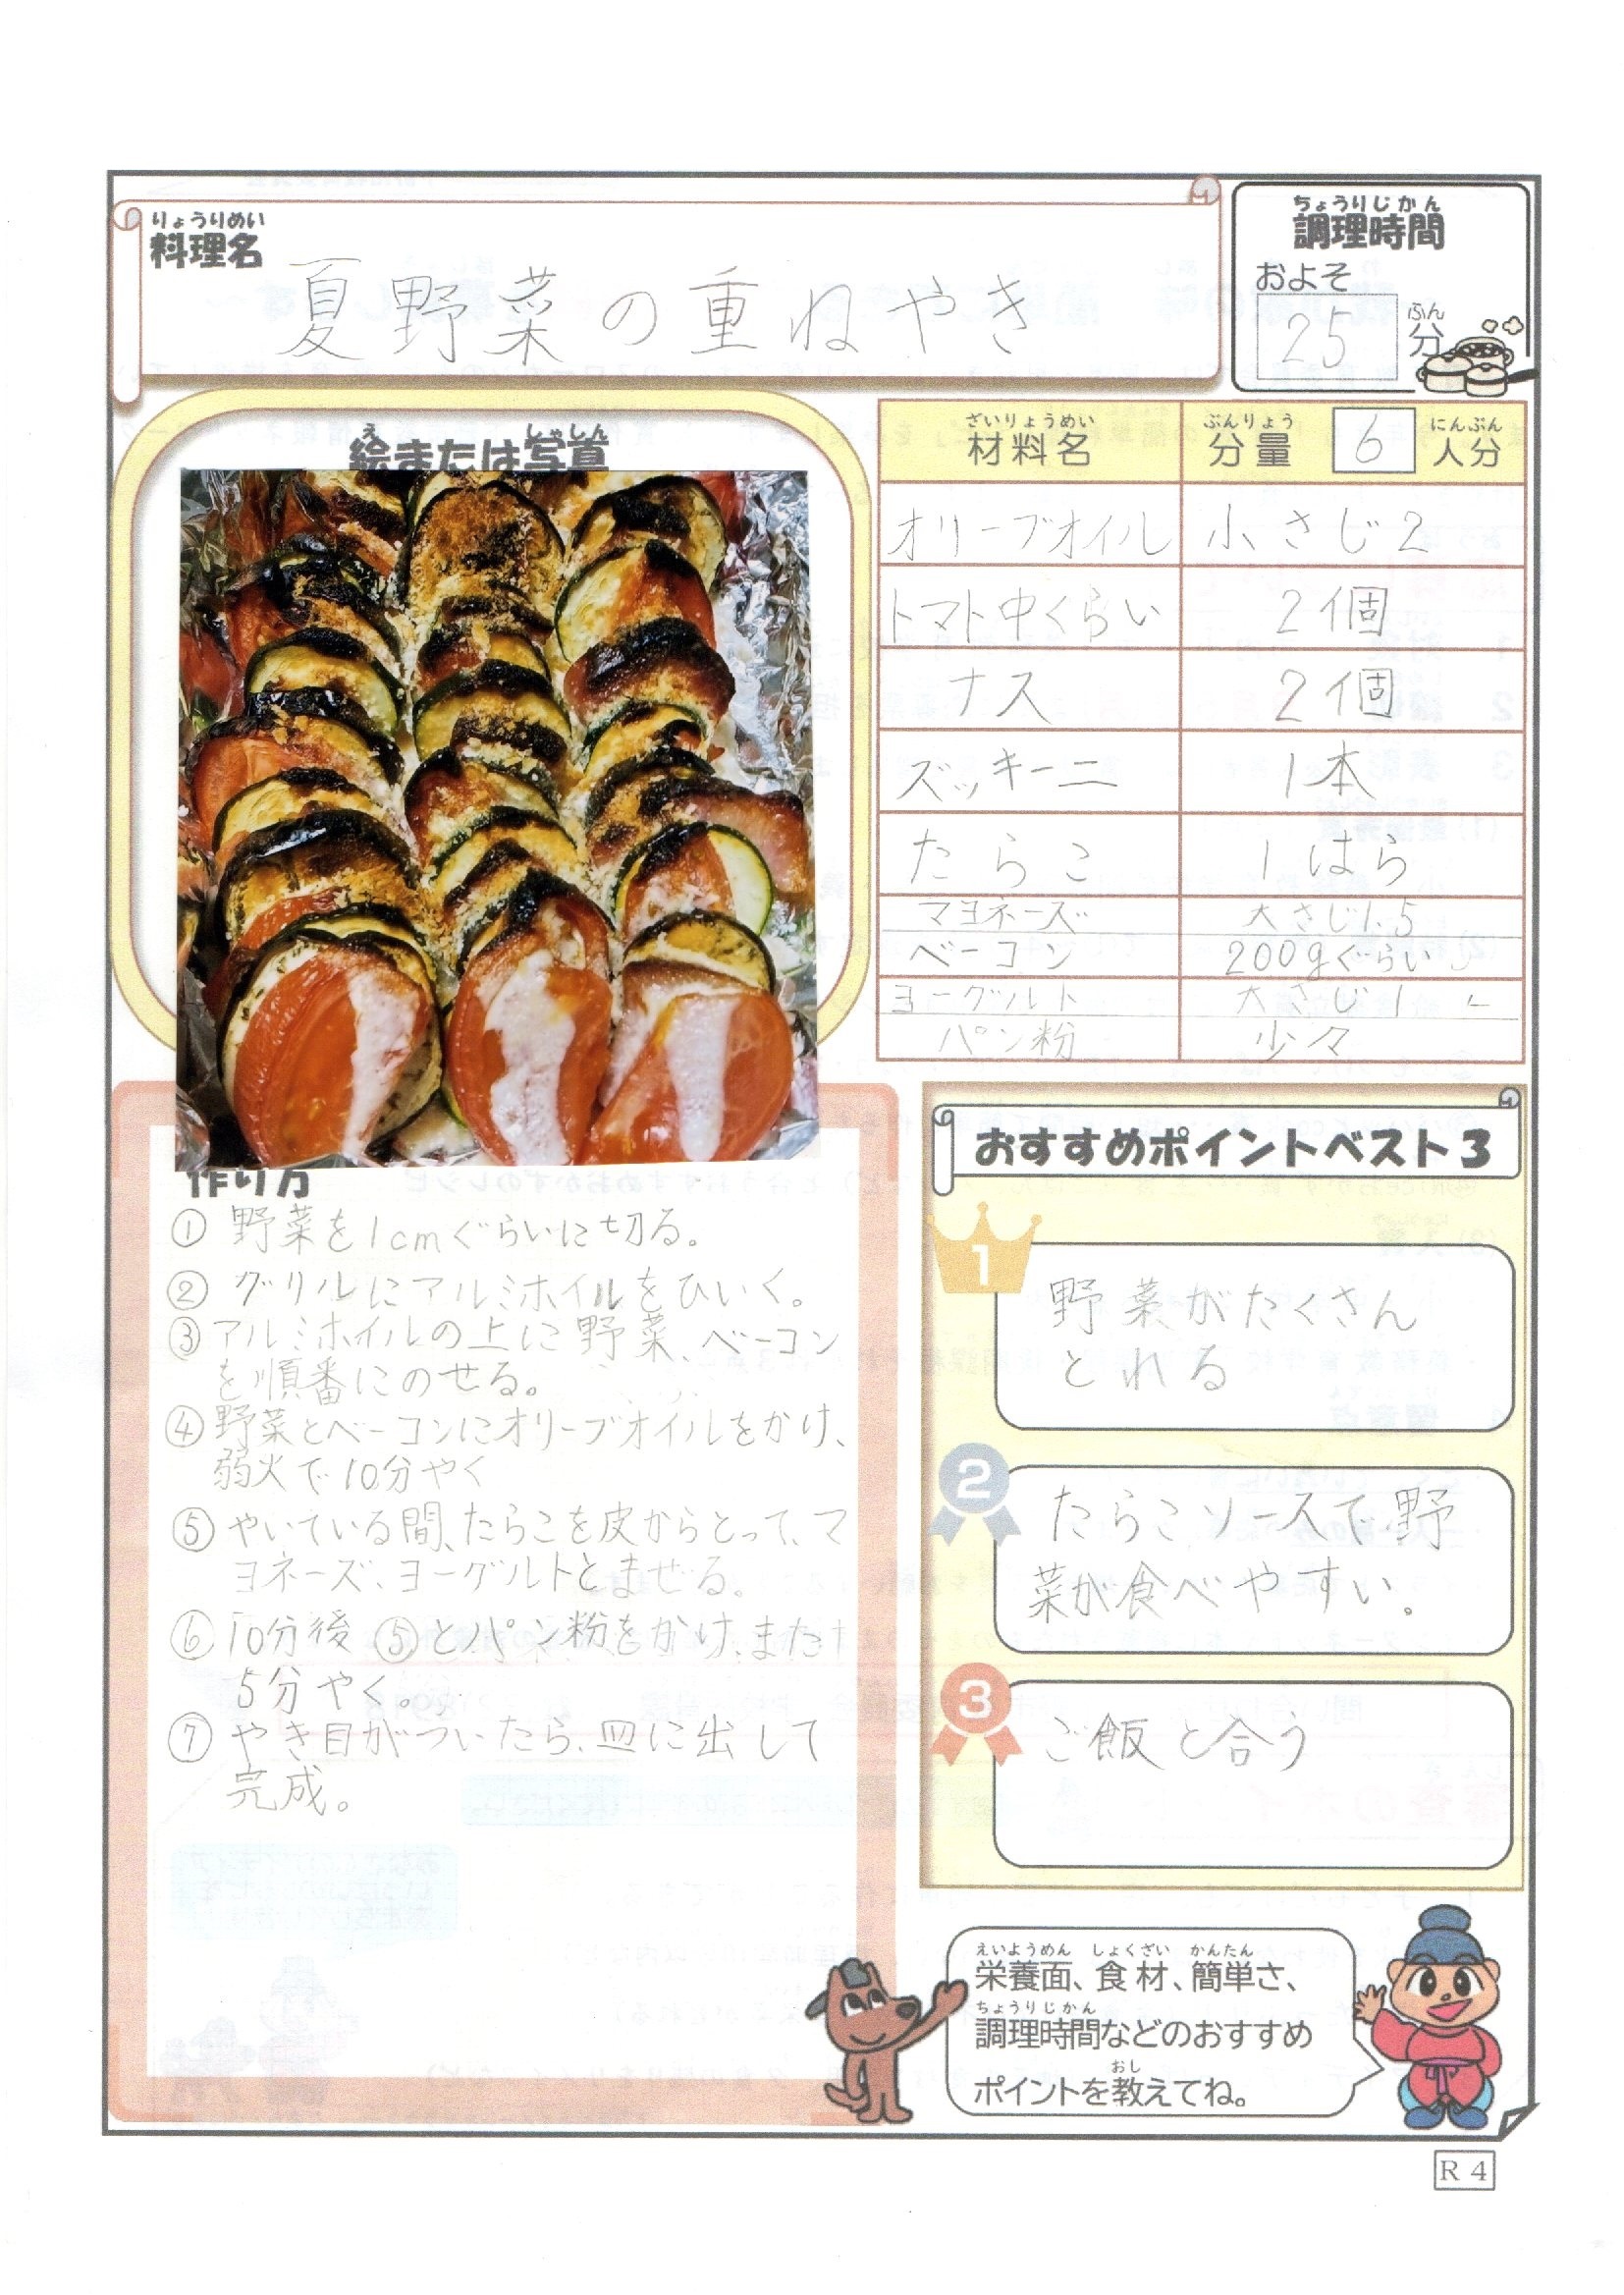 りょうりめい
料理名
夏野菜の重ねやき
ちょうりじかん
調理時間
およそ
25 分
ふん
え しゃしん
絵または写真
ざいりょうめい ぶんりょう にんぶん
材料名 分量 6 人分
オリーブオイル 小さじ2
トマト中くらい 2個
ナス 2個
ズッキーニ 1本
たらこ 1はら
マヨネーズ 大さじ1.5
ベーコン 200gぐらい
ヨーグルト 大さじ1
パン粉 少々
作り方
① 野菜を1cmぐらいに切る。
② グリルにアルミホイルをひいく。
③ アルミホイルの上に野菜、ベーコン
を順番にのせる。
④ 野菜とベーコンにオリーブオイルをかけ、
弱火で10分やく
⑤ やいている間、たらこを皮からとって、マ
ヨネーズ、ヨーグルトとまぜる。
⑥ 10分後 ⑤とパン粉をかけ、また
5分やく。
⑦ やき目がついたら、皿に出して
完成。
おすすめポイントベスト3
1
野菜がたくさん
とれる
2
たらこソースで野
菜が食べやすい。
3
ご飯と合う
えいようめん しょくざい かんたん
栄養面、食材、簡単さ、
ちょうりじかん
調理時間などのおすすめ
おし
ポイントを教えてね。
R4